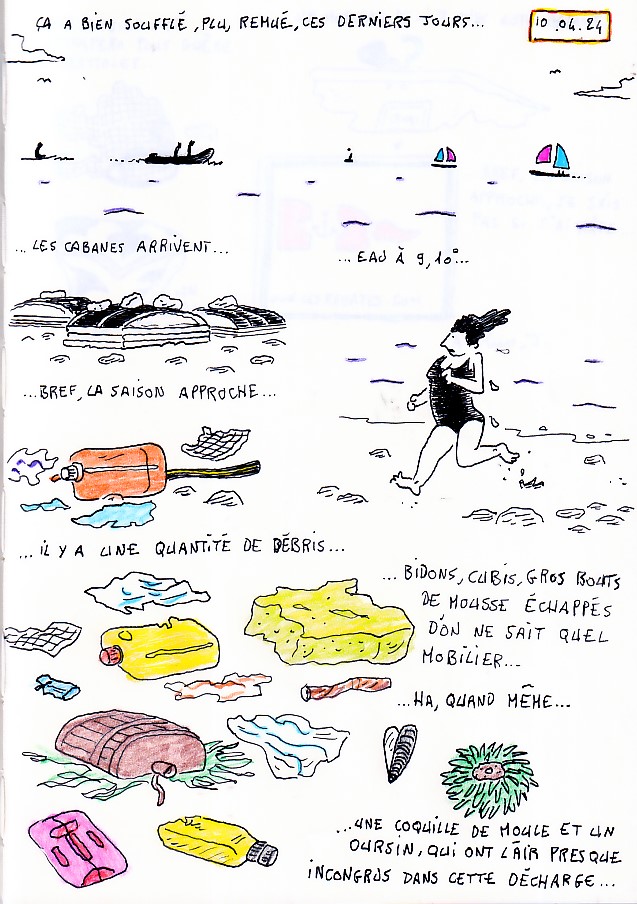 ÇA A BIEN SOUFFLÉ, PLU, REMUÉ, CES DERNIERS JOURS...
10.04.24
...LES CABANES ARRIVENT...
...EAU À 9,10°...
...BREF, LA SAISON APPROCHE...
...IL Y A UNE QUANTITÉ DE DÉBRIS...
...BIDONS, CUBIS, GROS BOUTS
DE MOUSSE ÉCHAPPÉS
D'ON NE SAIT QUEL
MOBILIER...
...HA, QUAND MÊME...
...UNE COQUILLE DE MOULE ET UN
OURSIN, QUI ONT L'AIR PRESQUE
INCONGRUS DANS CETTE DÉCHARGE...